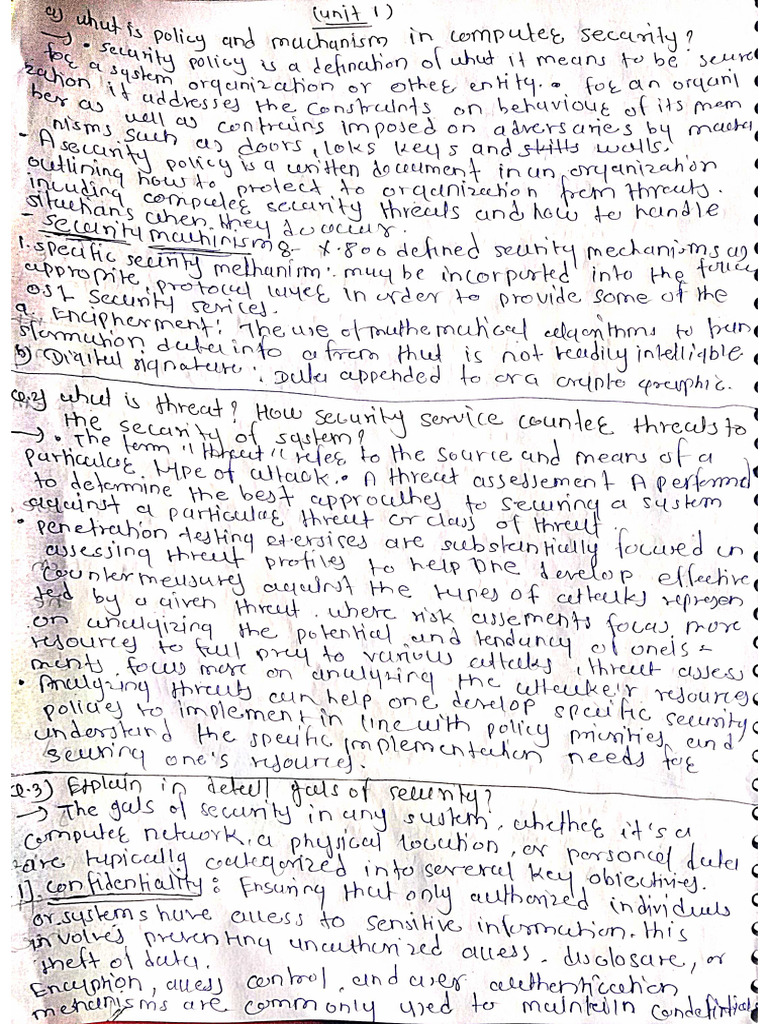 (unit 1)
a) what is policy and machanism in computer security?
→ • security policy is a defination of what it means to be secure
for a system organization or other entity. • for an organi
zation it addresses the constraints on behaviour of its mem
ber as well as contrains imposed on adversaries by macha
nisms such as doors, loks keys and walls.
- A security policy is a written document in an organization
outlining how to protect to organization from threats.
including computer security threats and how to handle
situations when they do occur.
- security machinism :- X.800 defined security mechanisms as
1. specific security methanism: may be incorported into the
appropite protocol layer in order to provide some of the
OSI security serices.
a. Encipherment: The use of mathematical algorithms to
data into a from that is not readily intelligble
b) Digital signature: Data appended to or a crypto graphic.
Q.2) what is threat? How security service counter threats to
the security of system?
→ • The term "threat" refer to the source and means of a
particular type of attack. • A threat assessement A performed
to determine the best approuthes to securing a system
against a particular threat or class of threat.
• penetration testing exersises are substantially focused on
assessing threat profiles to help one develop effective
countermeasures against the types of attacks represen
ted by a given threat. where risk assements focus more
on analyizing the potential and tendancy of one's
resources to fall prey to various attacks, threat assess
ments focus more on analyzing the attaker's resources
• Analyzing threats can help one develop specific security
policies to implement in line with policy priorities and
understand the specific implementation needs for
securing one's resources.
Q.3) Explain in detail gals of security?
→ The gals of security in any system, whether it's a
computer network, a physical location, or personal data
are typically categorized into several key objectives.
1] confidentiality: Ensuring that only authorized individuals
or systems have access to sensitive information. this
involves preventing unauthorized access, disclosure, or
theft of data.
Encryption, access control, and user authentication
mehanisms are commonly used to maintain